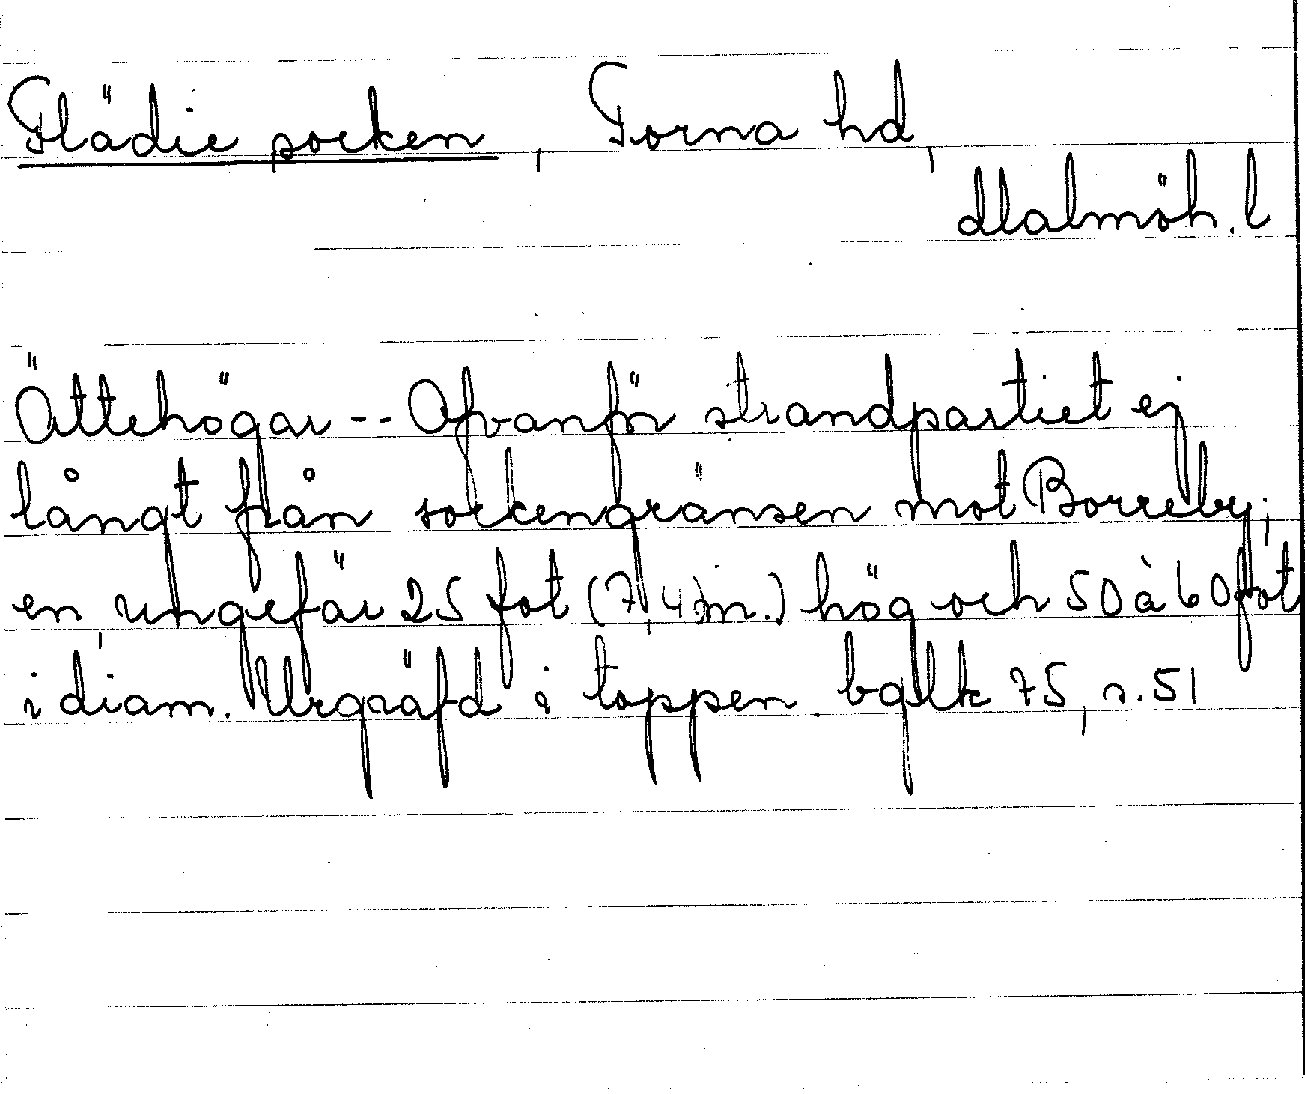 Flädie socken, Torna hd,
Malmöh. l
Ättehögar -- Ofvanför strandpartiet ej
långt från sockengränsen mot Borreby;
en, ungefär 25 fot (7,4 m.) hög och 50 à 60 fot
i diam. Urgräfd i toppen. bglk 75, s. 51